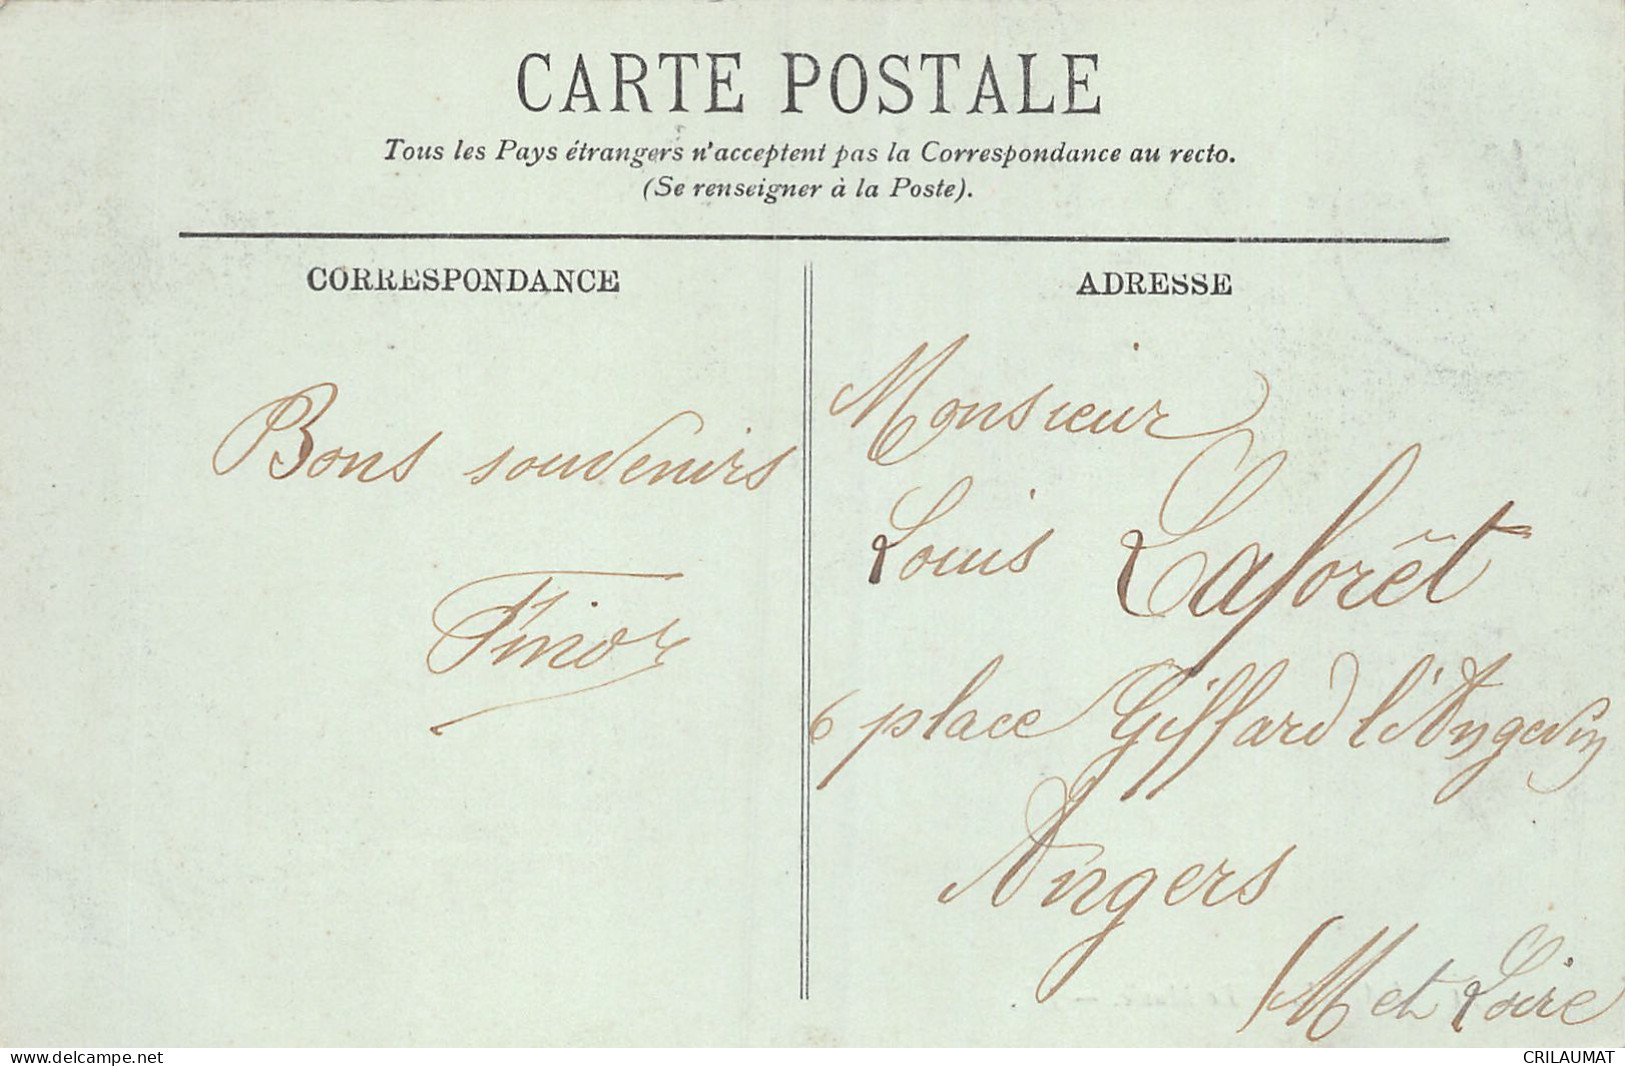 CARTE POSTALE
Tous les Pays étrangers n'acceptent pas la Correspondance au recto.
(Se renseigner à la Poste).
CORRESPONDANCE
Bons souvenirs
ADRESSE
Monsieur
Louis Laforêt
6 place Giffard l'Angevin
Angers
(M et Loire
delcampe.net
CRILAUMAT